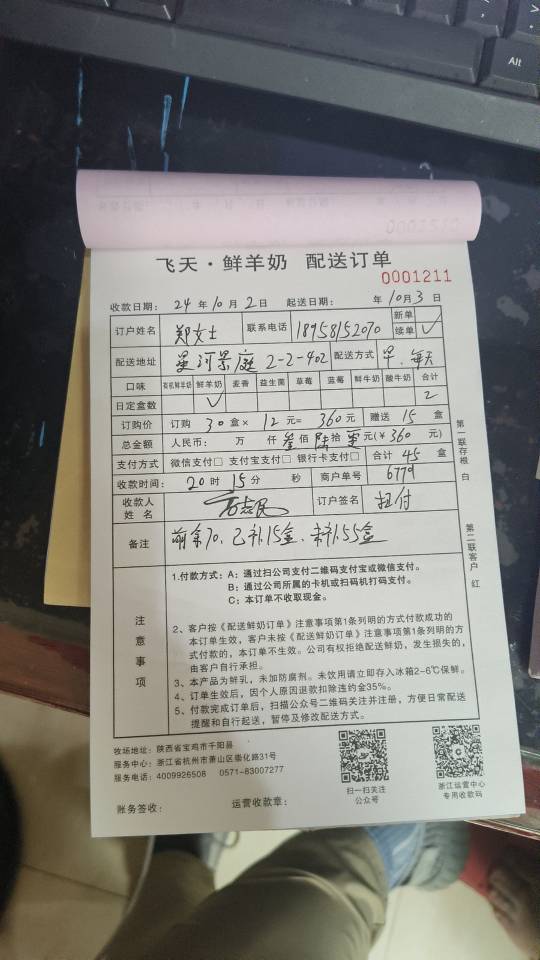 Alt
飞天·鲜羊奶 配送订单
0001211
收款日期: 24 年 10 月 2 日 起送日期: 年 10 月 3 日
订户姓名 郑女士 联系电话 18958152070 新单
续单 ✓
配送地址 星河景庭 2-2-402 配送方式 早、每天
口味 有机鲜羊奶 鲜羊奶 麦香 益生菌 草莓 蓝莓 鲜牛奶 酸牛奶 合计
日定盒数 ✓ 2
订购价 订购 30 盒× 12 元= 360 元 赠送 15 盒
总金额 人民币: 万 仟 叁 佰 陆 拾 零 元(¥ 360 元)
支付方式 微信支付□ 支付宝支付□ 银行卡支付□ 合计 45 盒
收款时间: 20 时 15 分 秒 商户单号 6779
收款人
姓 名 订户签名 扫付
备注 前余70、已补15盒、未补55盒
第一联存根 白
第二联客户 红
注意事项
1.付款方式: A; 通过扫公司支付二维码支付宝或微信支付。
B; 通过公司所属的卡机或扫码机打码支付。
C; 本订单不收取现金。
2、客户按《配送鲜奶订单》注意事项第1条列明的方式付款成功的
本订单生效,客户未按《配送鲜奶订单》注意事项第1条列明的方
式付款的,本订单不生效。公司有权拒绝配送鲜奶,发生损失的,
由客户自行承担。
3、本产品为鲜乳,未加防腐剂。未饮用请立即存入冰箱2-6℃保鲜。
4、订单生效后,因个人原因退款扣除违约金35%。
5、付款完成订单后,扫描公众号二维码关注并注册,方便日常配送
提醒和自行起送,暂停及修改配送方式。
牧场地址: 陕西省宝鸡市千阳县
服务中心: 浙江省杭州市萧山区崇化路31号
服务电话: 4009926508 0571-83007277
扫一扫关注
公众号
浙江运营中心
专用收款码
账务签收: 运营收款章: